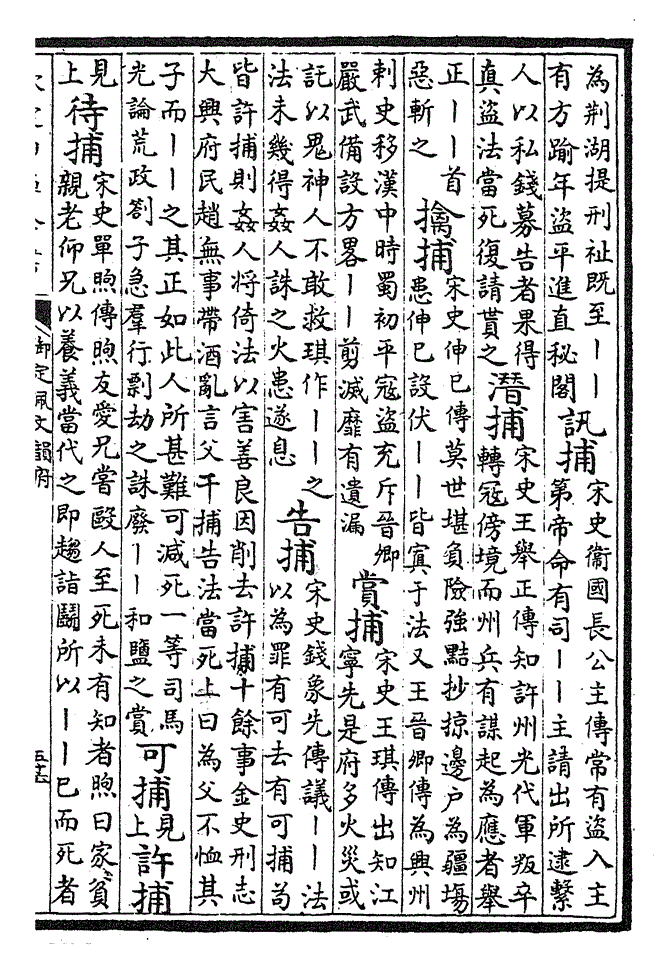 為荆湖提刑祉既至丨丨
有方踰年盜平進直秘閣
訊捕
宋史衛國長公主傳常有盜入主
第帝命有司丨丨主請出所逮繫
人以私錢募告者果得
真盜法當死復請貰之
潛捕
宋史王舉正傳知許州光代軍叛卒
轉冦傍境而州兵有謀起為應者舉
正丨丨首
惡斬之
擒捕
宋史伸巳傳莫世堪負險強黠抄掠邊户為疆埸
患伸巳設伏丨丨皆寘于法又王晉卿傳為興州
刺史移漢中時蜀初平冦盜充斥晉卿
嚴武備設方畧丨丨剪滅靡有遺漏
賞捕
宋史王琪傳出知江
寧先是府多火災或
託以鬼神人不敢救琪作丨丨之
法未幾得姦人誅之火患遂息
告捕
宋史錢象先傳議丨丨法
以為罪有可去有可捕苟
皆許捕則姦人將倚法以害善良因削去許捕十餘事金史刑志
大興府民趙無事帶酒亂言父千捕告法當死上曰為父不恤其
子而丨丨之其正如此人所甚難可減死一等司馬
光論荒政劄子急羣行剽劫之誅廢丨丨和鹽之賞
可捕
見
上
許捕
見
上
待捕
宋史單煦傳煦友愛兄嘗毆人至死未有知者煦曰家貧
親老仰兄以養義當代之即趨詣鬬所以丨丨巳而死者
御定佩文韻府